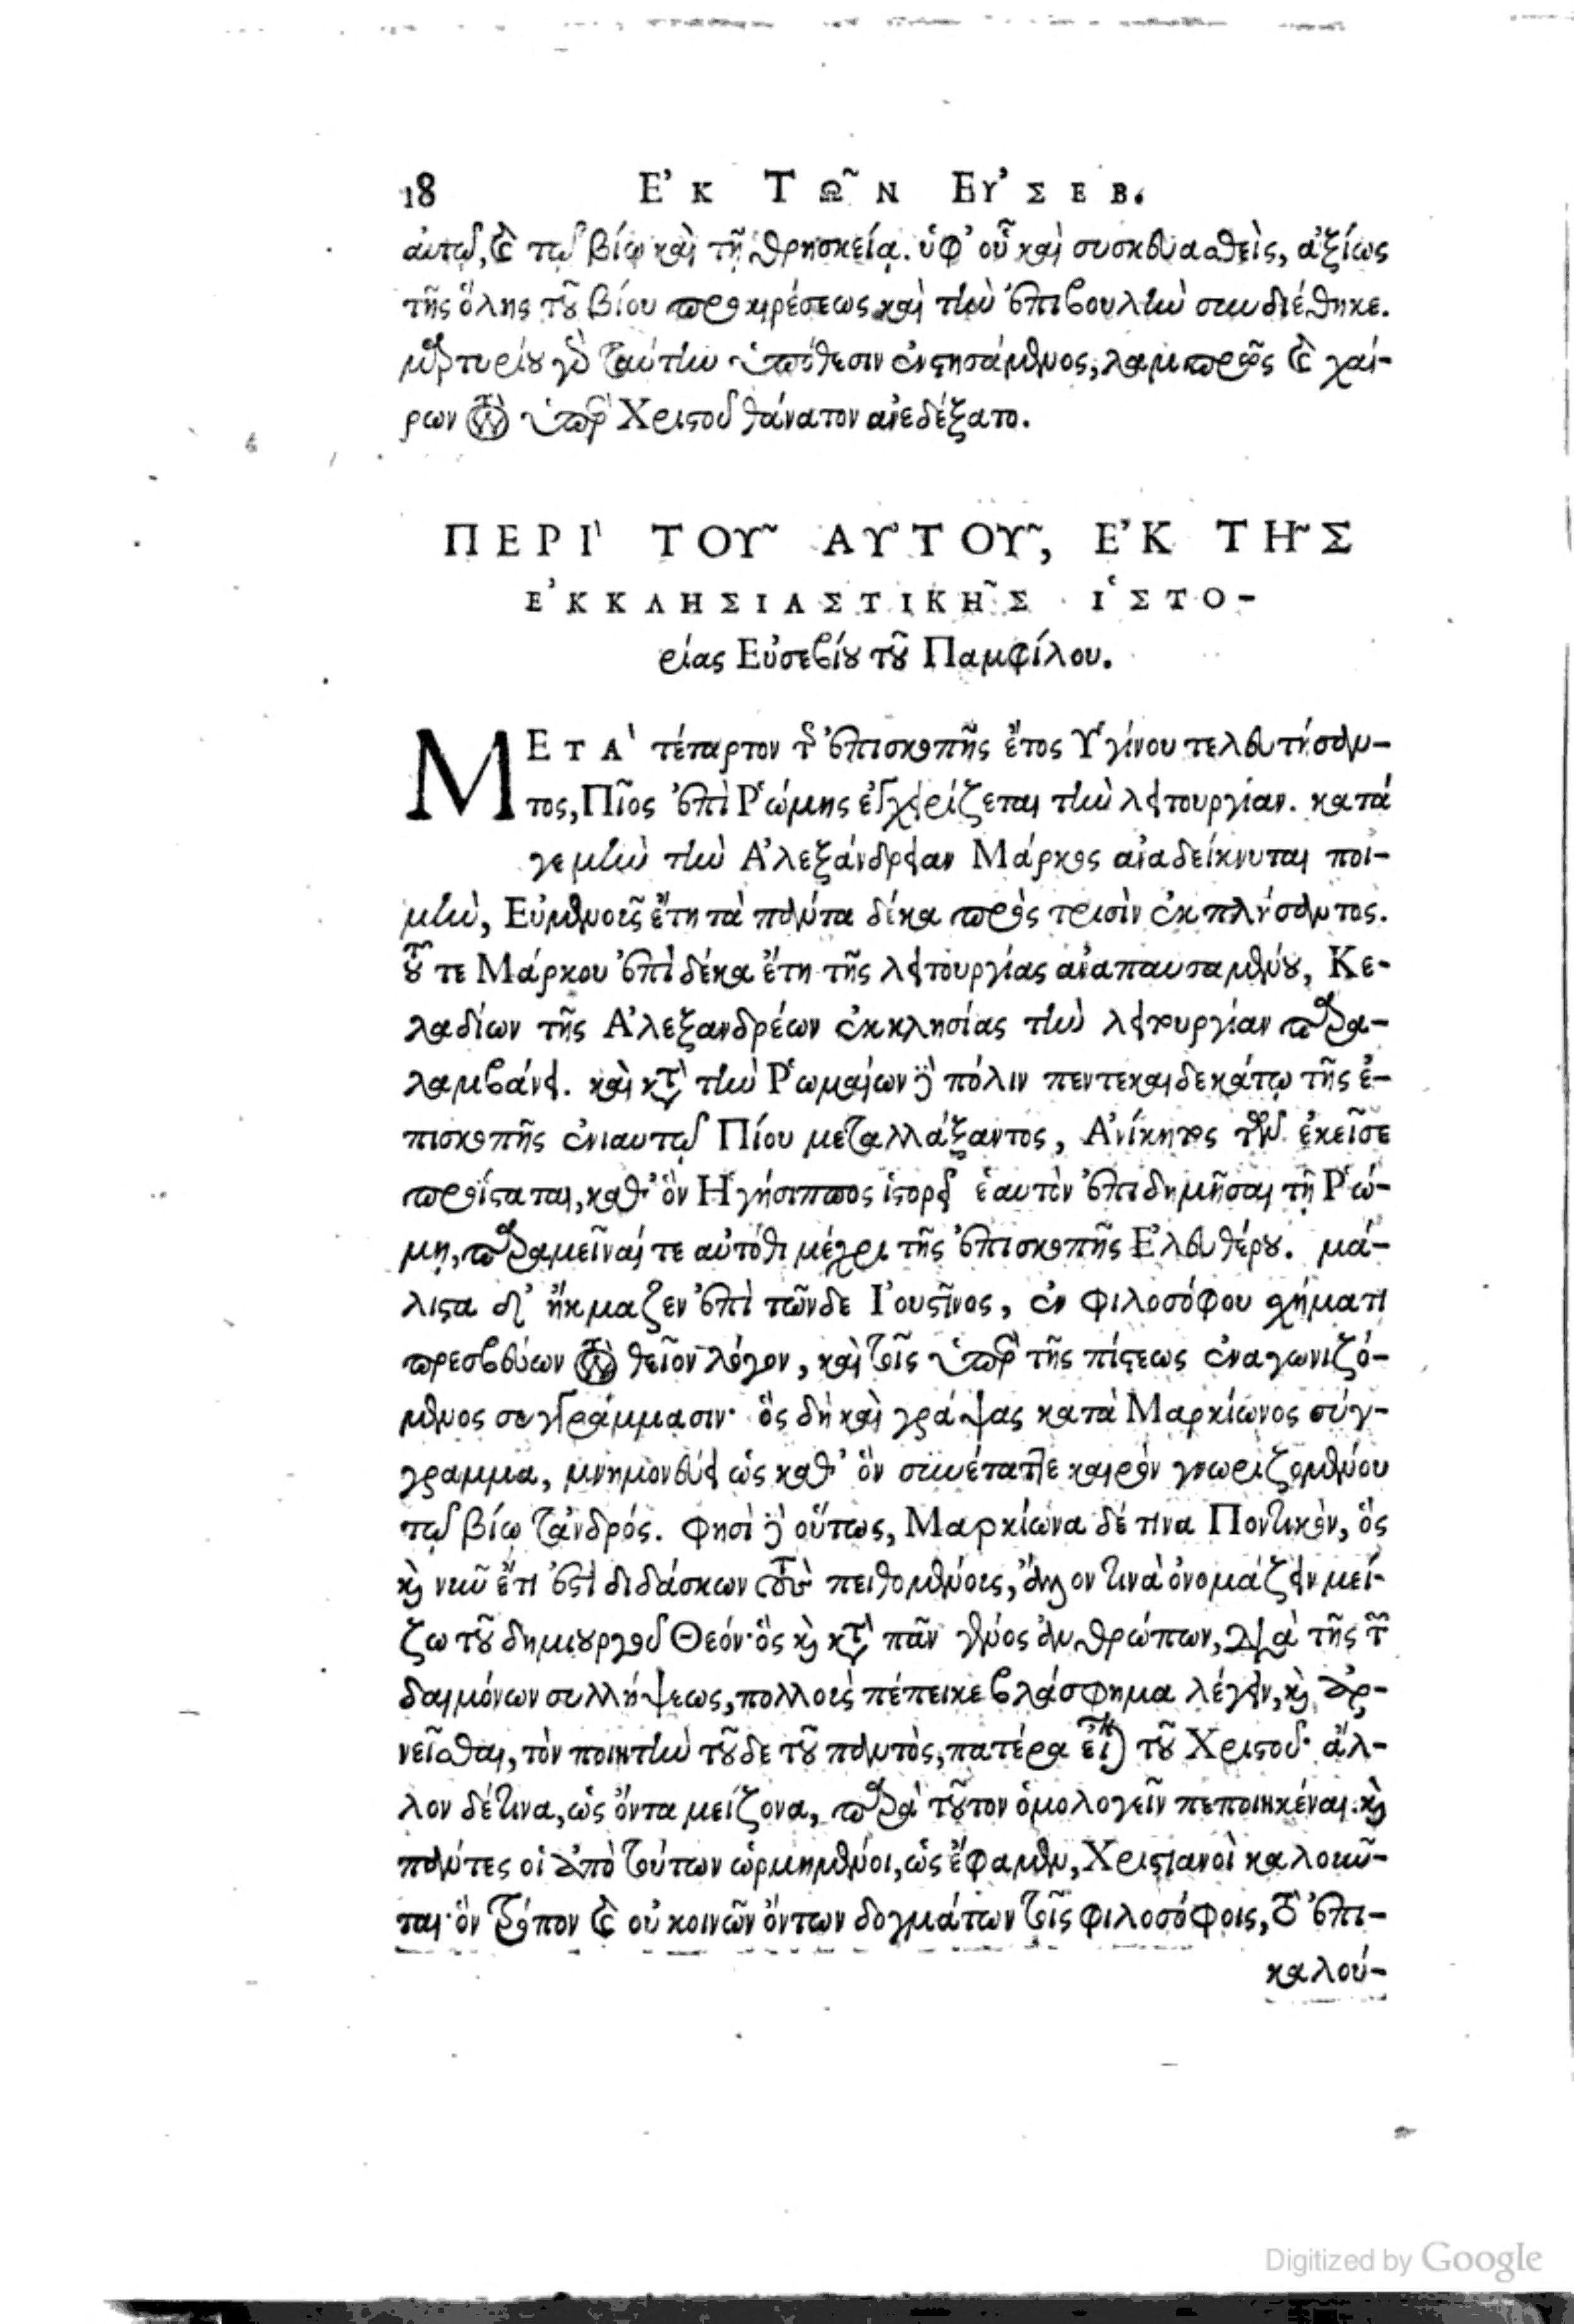 18 ἘΚ ΤΩ͂Ν ΕΥ̓ΣΕΒ.
αὐτῷ, καὶ τῷ βίῳ καὶ τῇ θρησκείᾳ. ὑφ' οὗ καὶ συσκευασθεὶς, ἀξίως
τῆς ὅλης τοῦ βίου προαιρέσεως καὶ τὴν ἐπιβουλὴν συνδιέθηκε.
μαρτυρίου γὰρ ταύτην ὑπόθεσιν ἐνστησάμενος, λαμπρῶς καὶ χαί-
ρων τὸν ὑπὲρ Χριστοῦ θάνατον ἀνεδέξατο.
ΠΕΡΙ' ΤΟΥ͂ ΑΥ̓ΤΟΥ͂, ἘΚ ΤΗ͂Σ
ἘΚΚΛΗΣΙΑΣΤΙΚΗ͂Σ ἹΣΤΟ-
ρίας Εὐσεβίου τοῦ Παμφίλου.
ΜΕΤΑ' τέταρτον τῆς ἐπισκοπῆς ἔτος Ὑγίνου τελευτήσαν-
τος, Πῖος ἐπὶ Ῥώμης ἐγχειρίζεται τὴν λειτουργίαν. κατά
γε μὴν τὴν Ἀλεξάνδρειαν Μάρκος ἀναδείκνυται ποι-
μὴν, Εὐμενοῦς ἔτη τὰ πάντα δέκα πρὸς τρισὶν ἐκπλήσαντος.
τοῦ τε Μάρκου ἐπὶ δέκα ἔτη τῆς λειτουργίας ἀναπαυσαμένου, Κε-
λαδίων τῆς Ἀλεξανδρέων ἐκκλησίας τὴν λειτουργίαν παρα-
λαμβάνει. καὶ κατὰ τὴν Ῥωμαίων δὲ πόλιν πεντεκαιδεκάτῳ τῆς ἐ-
πισκοπῆς ἐνιαυτῷ Πίου μεταλλάξαντος, Ἀνίκητος τῶν ἐκεῖσε
προΐσταται, καθ' ὃν Ἡγήσιππος ἱστορεῖ ἑαυτὸν ἐπιδημῆσαι τῇ Ῥώ-
μῃ, παραμεῖναί τε αὐτόθι μέχρι τῆς ἐπισκοπῆς Ἐλευθέρου. μά-
λιστα δ' ἤκμαζεν ἐπὶ τῶνδε Ἰουστῖνος, ἐν φιλοσόφου σχήματι
πρεσβεύων τὸν θεῖον λόγον, καὶ τοῖς ὑπὲρ τῆς πίστεως ἐναγωνιζό-
μενος συγγράμμασιν· ὃς δὴ καὶ γράψας κατὰ Μαρκίωνος σύγ-
γραμμα, μνημονεύει ὡς καθ' ὃν συνέταττε καιρὸν γνωριζομένου
τῷ βίῳ τἀνδρός. φησὶ δὲ οὕτως, Μαρκίωνα δέ τινα Ποντικὸν, ὃς
καὶ νῦν ἔτι ἐστὶ διδάσκων τοὺς πειθομένους, ἄλλον τινὰ ὀνομάζειν μεί-
ζω τοῦ δημιουργοῦ Θεόν· ὃς καὶ κατὰ πᾶν γένος ἀνθρώπων, διὰ τῆς τῶν
δαιμόνων συλλήψεως, πολλοὺς πέπεικε βλάσφημα λέγειν, καὶ ἀρ-
νεῖσθαι, τὸν ποιητὴν τοῦδε τοῦ παντὸς, πατέρα εἶναι τοῦ Χριστοῦ· ἄλ-
λον δέ τινα, ὡς ὄντα μείζονα, παρὰ τοῦτον ὁμολογεῖν πεποιηκέναι. καὶ
πάντες οἱ ἀπὸ τούτων ὡρμημένοι, ὡς ἔφαμεν, Χριστιανοὶ καλοῦν-
ται· ὃν τρόπον καὶ οὐ κοινῶν ὄντων δογμάτων τοῖς φιλοσόφοις, τὸ ἐπι-
καλού-
Digitized by Google